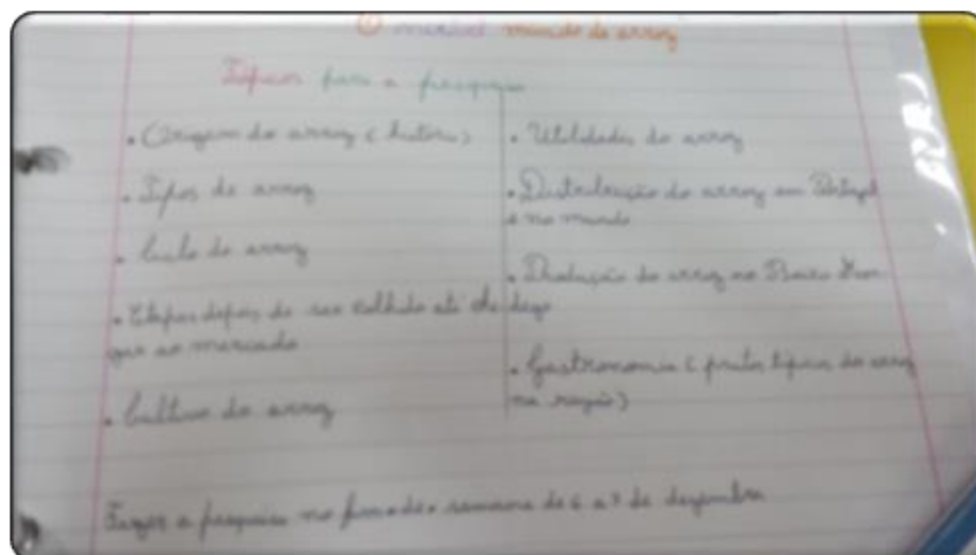 O incrível mundo do arroz
Tópicos para a pesquisa
• Origem do arroz (história)
• Tipos de arroz
• Ciclo do arroz
• Etapas depois de ser colhido até che
gar ao mercado
• Cultivo do arroz
• Utilidades do arroz
• Distribuição do arroz em Portugal
e no mundo
• Produção do arroz no Baixo
• Gastronomia (pratos típicos do arroz
na região)
Fazer a pesquisa no fim de semana de 6 a 7 de dezembro